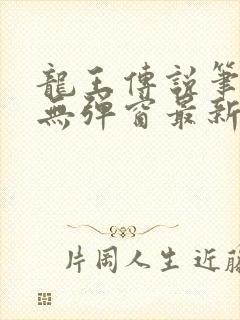 龍王傳說筆
無彈窗最新
片岡人生 近藤